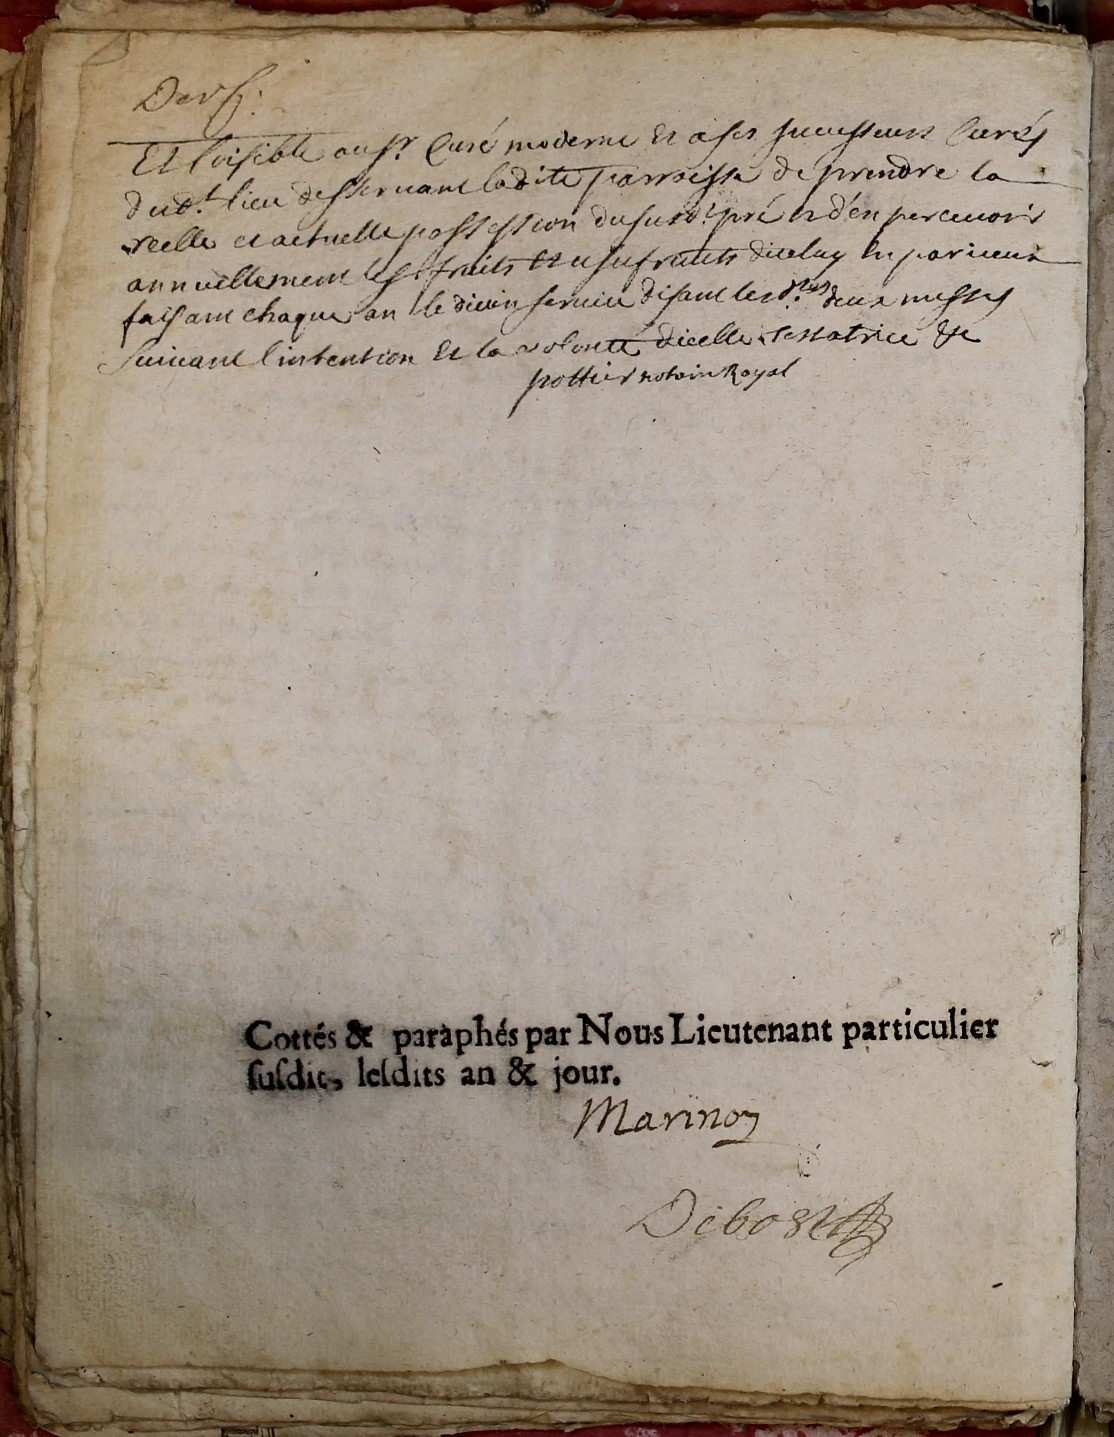 Et loisible au sr. Curé moderne et a ses successeurs Curés
dud.t lieu desseruant ladite parroisse de prendre la
reelle et actuelle possession du susd.t pré et d'en perceuoir
annuellement les fruits et usufruits diceluy en par iceux
faisant chaque an le diuin seruice disant lesd.tes deux messes
suiuant l'intention et la volonté dicelle testatrice &c
pottier notaire Royal
Cottés & paraphés par Nous Lieutenant particulier
susdit, lesdits an & jour.
Marinon
Debost